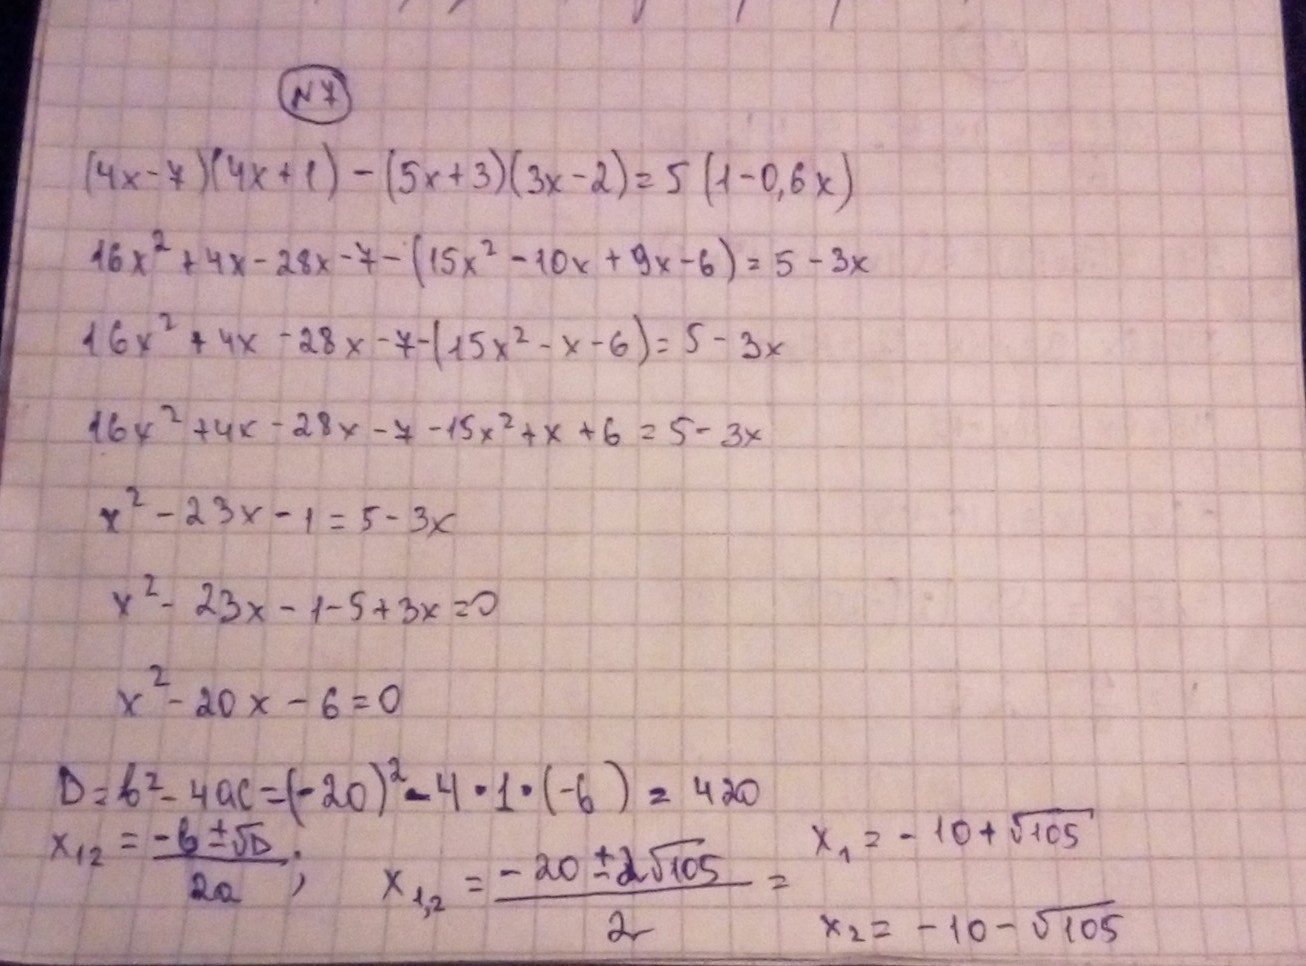 N7
(4x-7)(4x+1)-(5x+3)(3x-2)=5(1-0,6x)
16x²+4x-28x-7-(15x²-10x+9x-6)=5-3x
16x²+4x-28x-7-(15x²-x-6)=5-3x
16x²+4x-28x-7-15x²+x+6=5-3x
x²-23x-1=5-3x
x²-23x-1-5+3x=0
x²-20x-6=0
D=b²-4ac=(-20)²-4·1·(-6)=420
x₁₂=(-b±√D)/2a; x₁,₂=(-20±2√105)/2= x₁=-10+√105
x₂=-10-√105